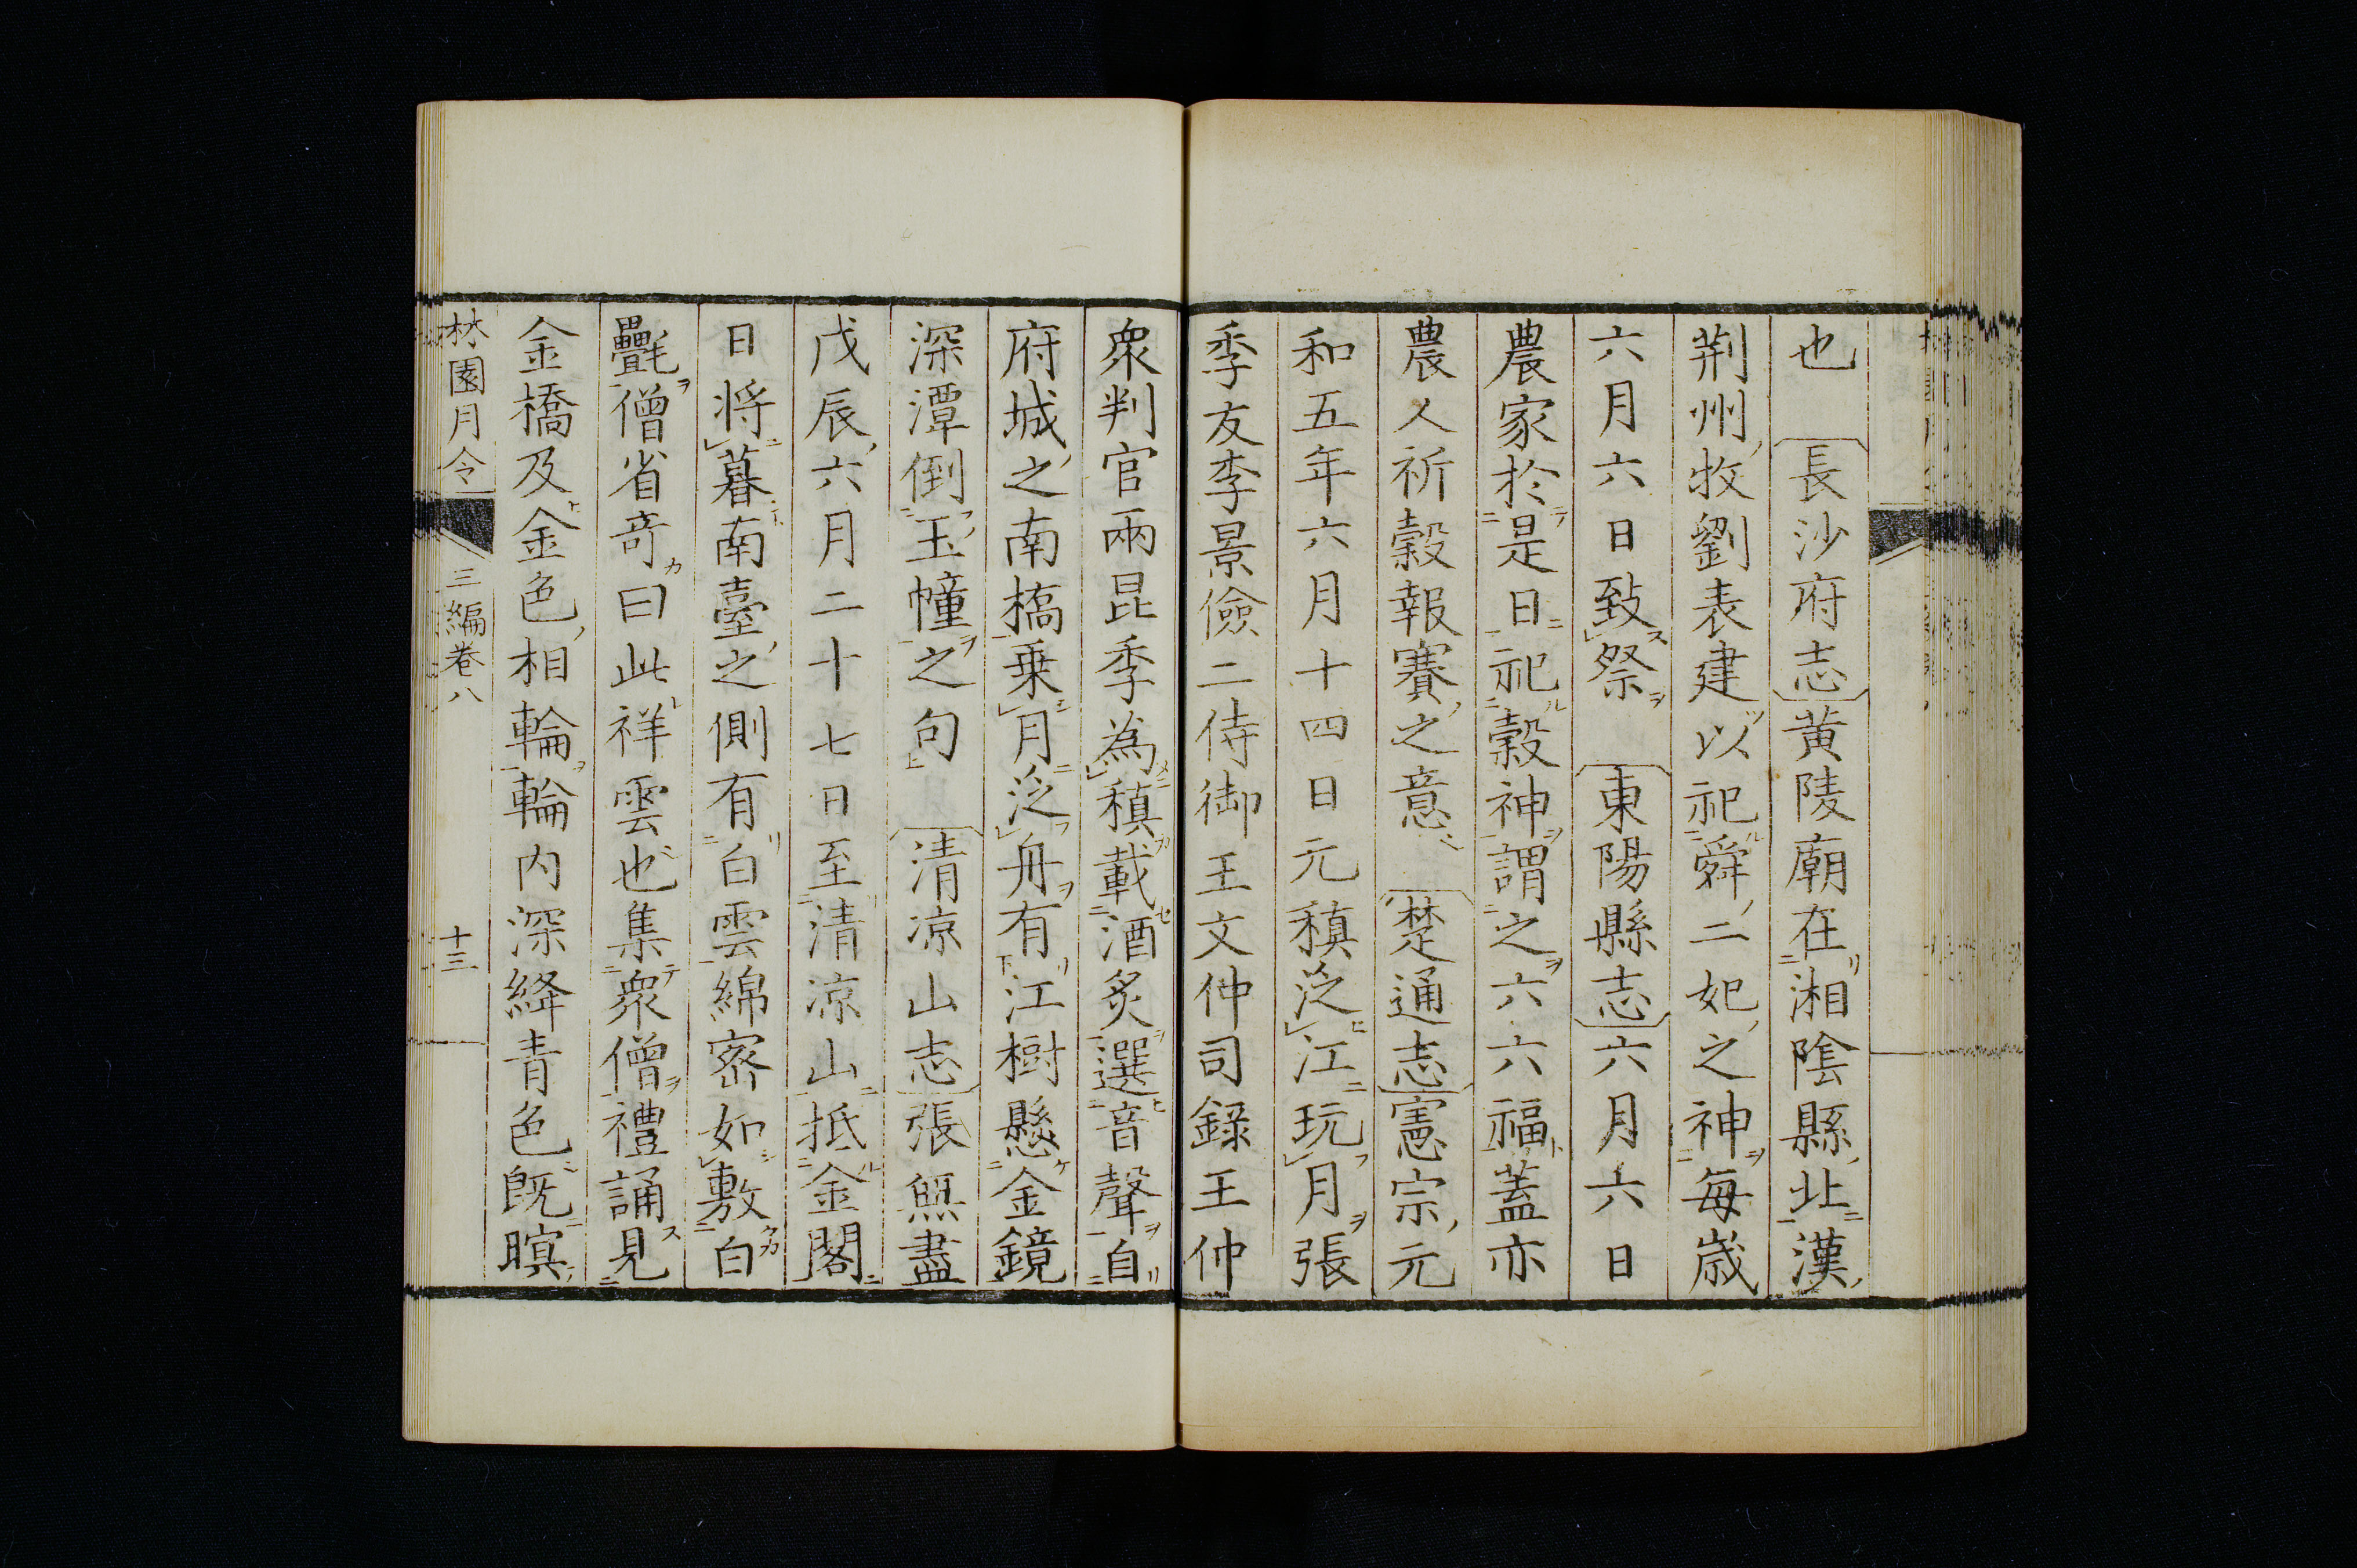 也　長沙府志黄陵廟在湘陰縣北漢
荊州牧劉表建以祀舜二妃之神毎歳
六月六日致祭　東陽縣志六月六日
農家於是日祀穀神謂之六六福蓋亦
農人祈穀報賽之意　楚通志憲宗元
和五年六月十四日元稹泛江玩月張
季友李景儉二侍御王文仲司録王仲
衆判官兩昆季為稹載酒炙選音聲自
府城之南橋乗月泛舟有江樹懸金鏡
深潭倒玉幢之句　清凉山志張無盡
戊辰六月二十七日至清凉山抵金閣
日将暮南臺之側有白雲綿宻如敷白
氎僧省竒曰此祥雲也集衆僧禮誦見
金橋及金色相輪輪内深絳青色既暝
林園月令　三編巻八　十三